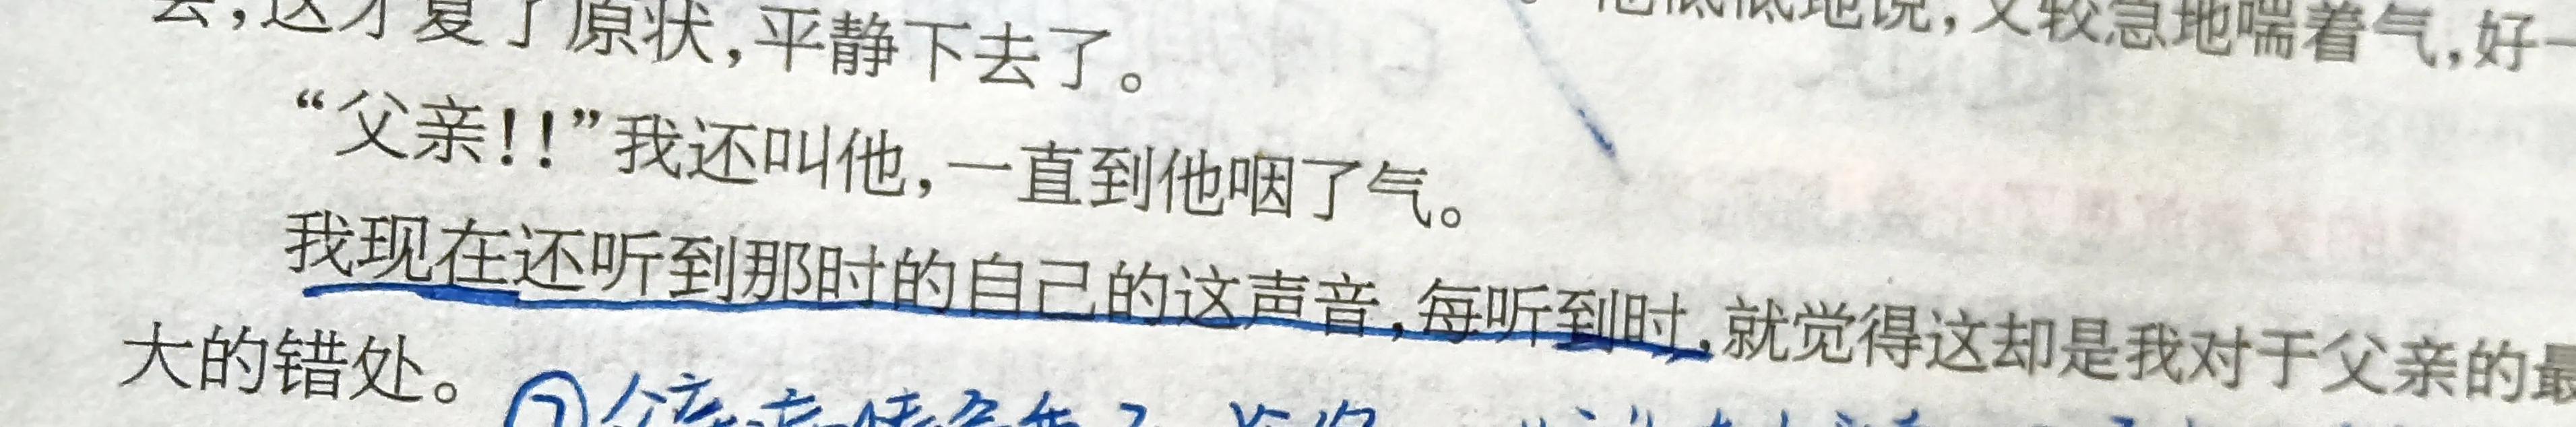 去,这才复了原状,平静下去了。 他低低地说,又较急地喘着气,好一
“父亲!!”我还叫他,一直到他咽了气。
我现在还听到那时的自己的这声音,每听到时,就觉得这却是我对于父亲的最
大的错处。